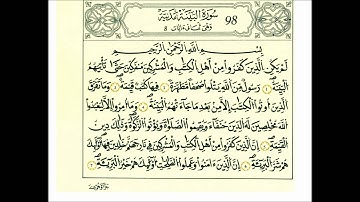 سورة البينة مدنية
98
وهي ثمان آيات 8
بسم الله الرحمن الرحيم
لم يكن الذين كفروا من أهل الكتب والمشركين منفكين حتى تأتيهم
البينة ١ رسول من الله يتلوا صحفا مطهرة ٢ فيها كتب قيمة ٣ وما تفرق
الذين أوتوا الكتب إلا من بعد ما جاءتهم البينة ٤ وما أمروا إلا ليعبدوا
الله مخلصين له الدين حنفاء ويقيموا الصلوة ويؤتوا الزكوة وذلك دين
القيمة ٥ إن الذين كفروا من أهل الكتب والمشركين في نار جهنم خلدين فيها أولئك
هم شر البرية ٦ إن الذين ءامنوا وعملوا الصلحت أولئك هم خير البرية ٧